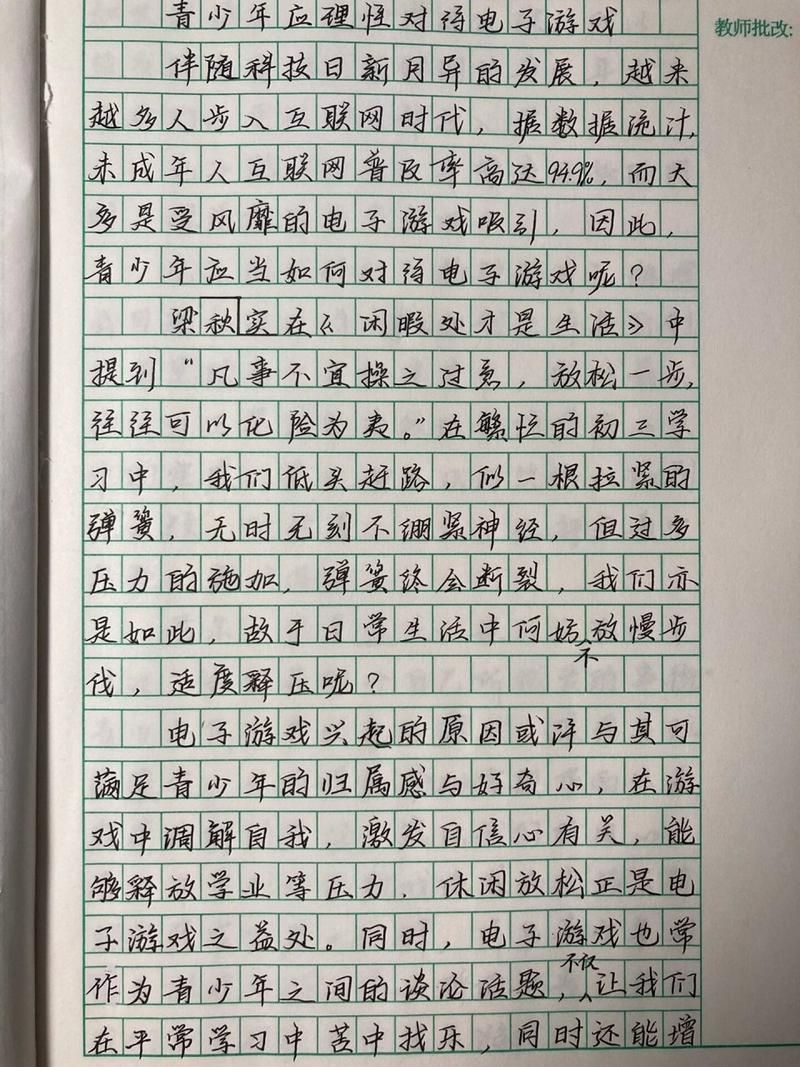 教师批改:
青少年应理性对待电子游戏
伴随科技日新月异的发展，越来
越多人步入互联网时代，据数据统计，
未成年人互联网普及率高达94.9%，而大
多是受风靡的电子游戏吸引，因此，
青少年应当如何对待电子游戏呢？
梁秋实在《闲暇处才是生活》中
提到“凡事不宜操之过急，放松一步，
往往可以化险为夷。”在繁忙的初三学
习中，我们低头赶路，似一根拉紧的
弹簧，无时无刻不绷紧神经，但过多
压力的施加，弹簧终会断裂，我们亦
是如此，故于日常生活中何妨不放慢步
伐，适度释压呢？
电子游戏兴起的原因或许与其可
满足青少年的归属感与好奇心，在游
戏中调解自我，激发自信心有关，能
够释放学业等压力．休闲放松正是电
子游戏之益处。同时，电子游戏也常
作为青少年之间的谈论话题，不仅让我们
在平常学习中苦中找乐，同时还能增